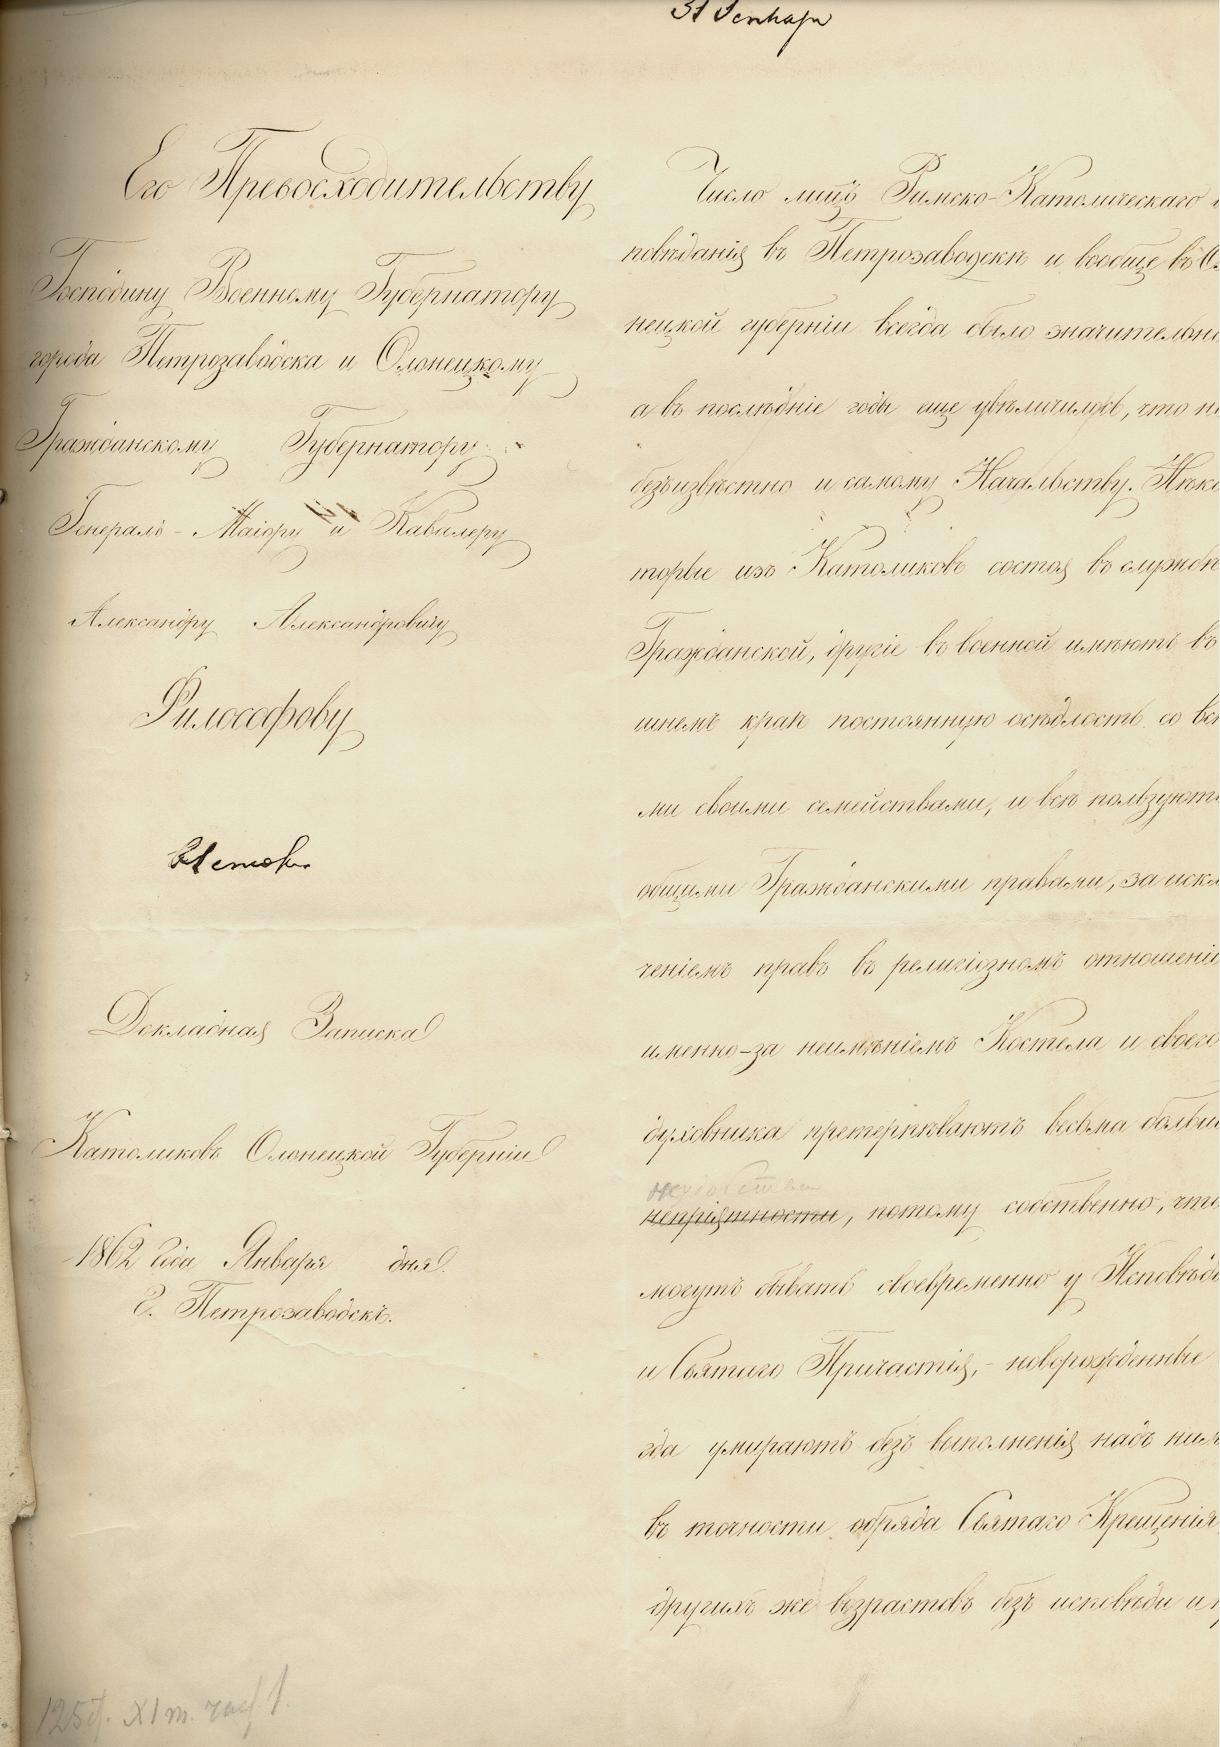 31 Января
Его Превосходительству
Господину Военному Губернатору
города Петрозаводска и Олонецкому
Гражданскому Губернатору
Генералъ-Маіору и Кавалеру
Александру Александровичу
Философову
Докладная Записка
Католиковъ Олонецкой Губерніи
1862 года Января дня
г. Петрозаводскъ.
125 ст. XI т. част 1.
Число лицъ Римско-Католическаго и
повѣданія въ Петрозаводскѣ и вообще въ Оло
нецкой губерніи всегда было значительно
а въ послѣдніе годы еще увѣличилось, что не
безъизвѣстно и самому Начальству. Нѣко
торые изъ Католиковъ состоя въ службѣ
Гражданской, другіе въ военной имѣютъ въ
шнемъ краѣ постоянную осѣдлость со все
ми своими семействами, и всѣ пользуютс
общими Гражданскими правами, за искл
ченіемъ правъ въ религіозномъ отношеніи
именно-за неимѣніемъ Костела и своего
духовника претерпѣваютъ весьма больші
неудобства
непріятности, потому собственно, что
могутъ бывать своевременно у Исповѣди
и Святаго Причастія,- новорожденные
гда умираютъ безъ выполненія надъ ними
въ точности обряда Святаго Крещенія
другихъ же возрастовъ безъ исповѣди и п